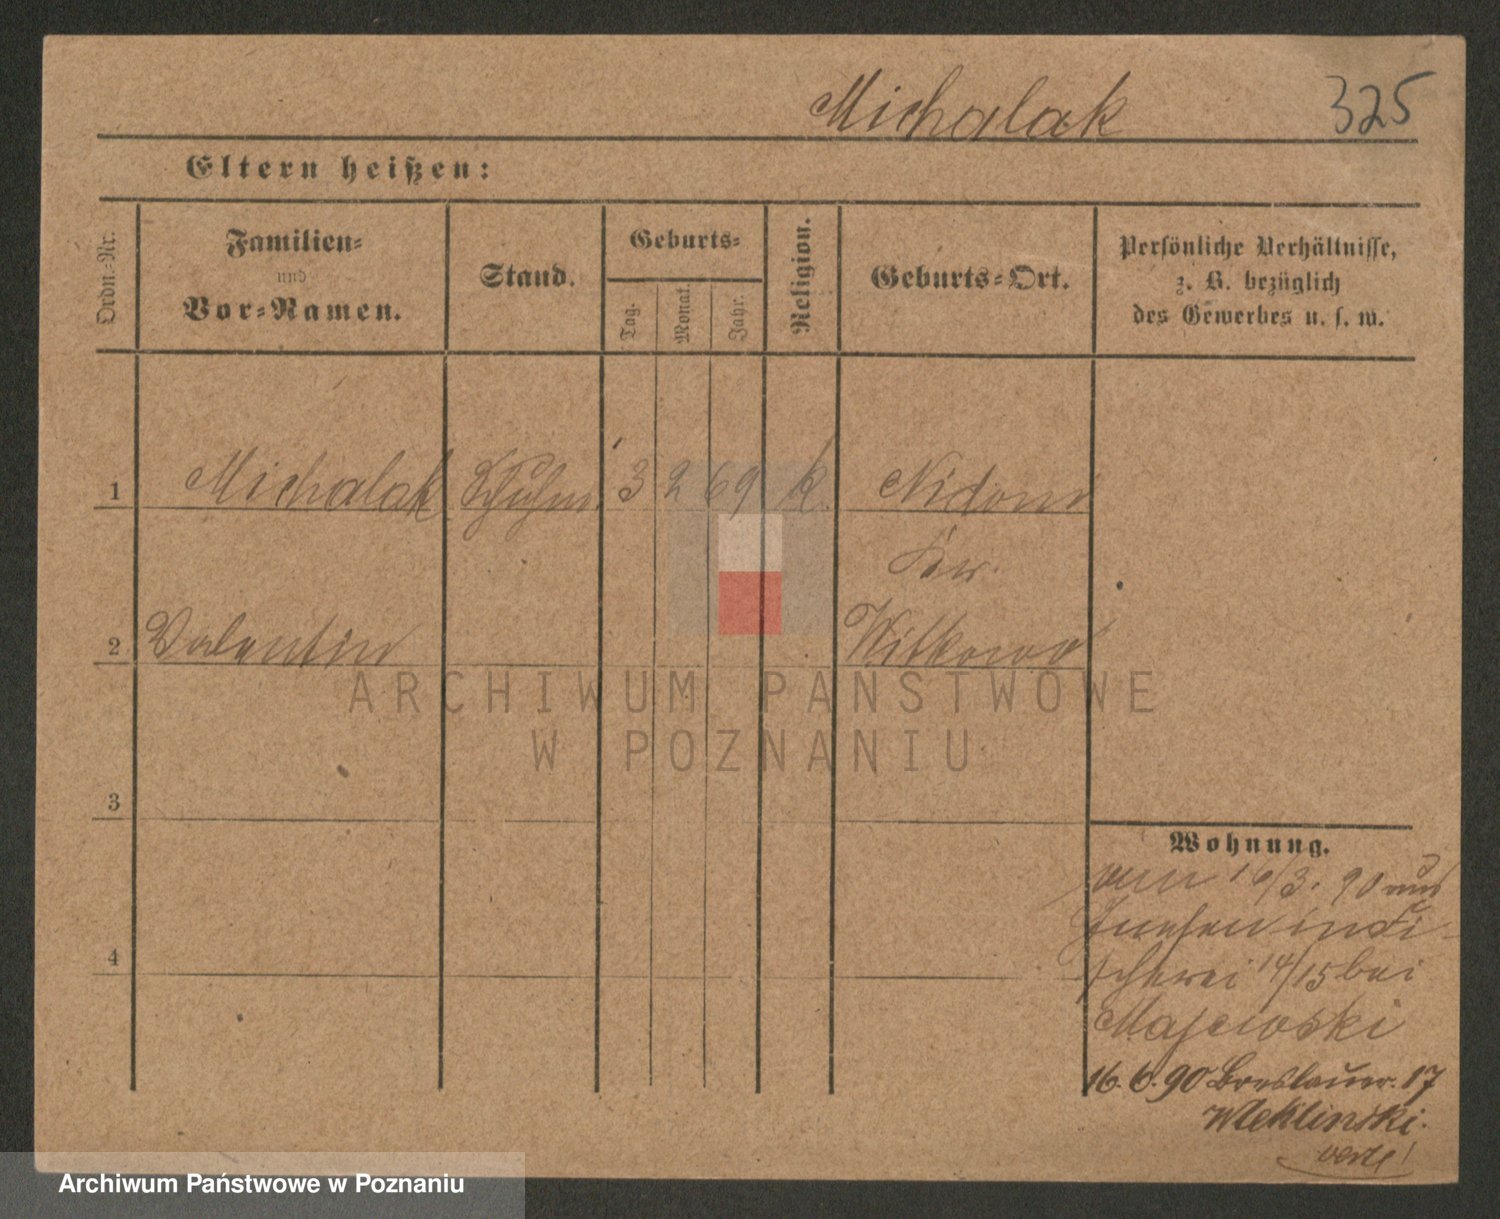 Michalak 325
Eltern heißen:
Ordn.-Nr.
Familien-
und
Vor-Namen.
Stand.
Geburts-
Tag.
Monat.
Jahr.
Religion.
Geburts-Ort.
Persönliche Verhältnisse,
z. B. bezüglich
des Gewerbes u. s. w.
1 Michalak Schuhm. 3 2 69 k. Nidom
Kr.
2 Valentin Witkowo
3
4
Wohnung.
vom 16/3. 90 aus
Gnesen in Fi-
scherei 14/15 bei
Majewski
16. 6. 90 Breslauer. 17
Weklinski.
verte!
ARCHIWUM PAŃSTWOWE
W POZNANIU
Archiwum Państwowe w Poznaniu